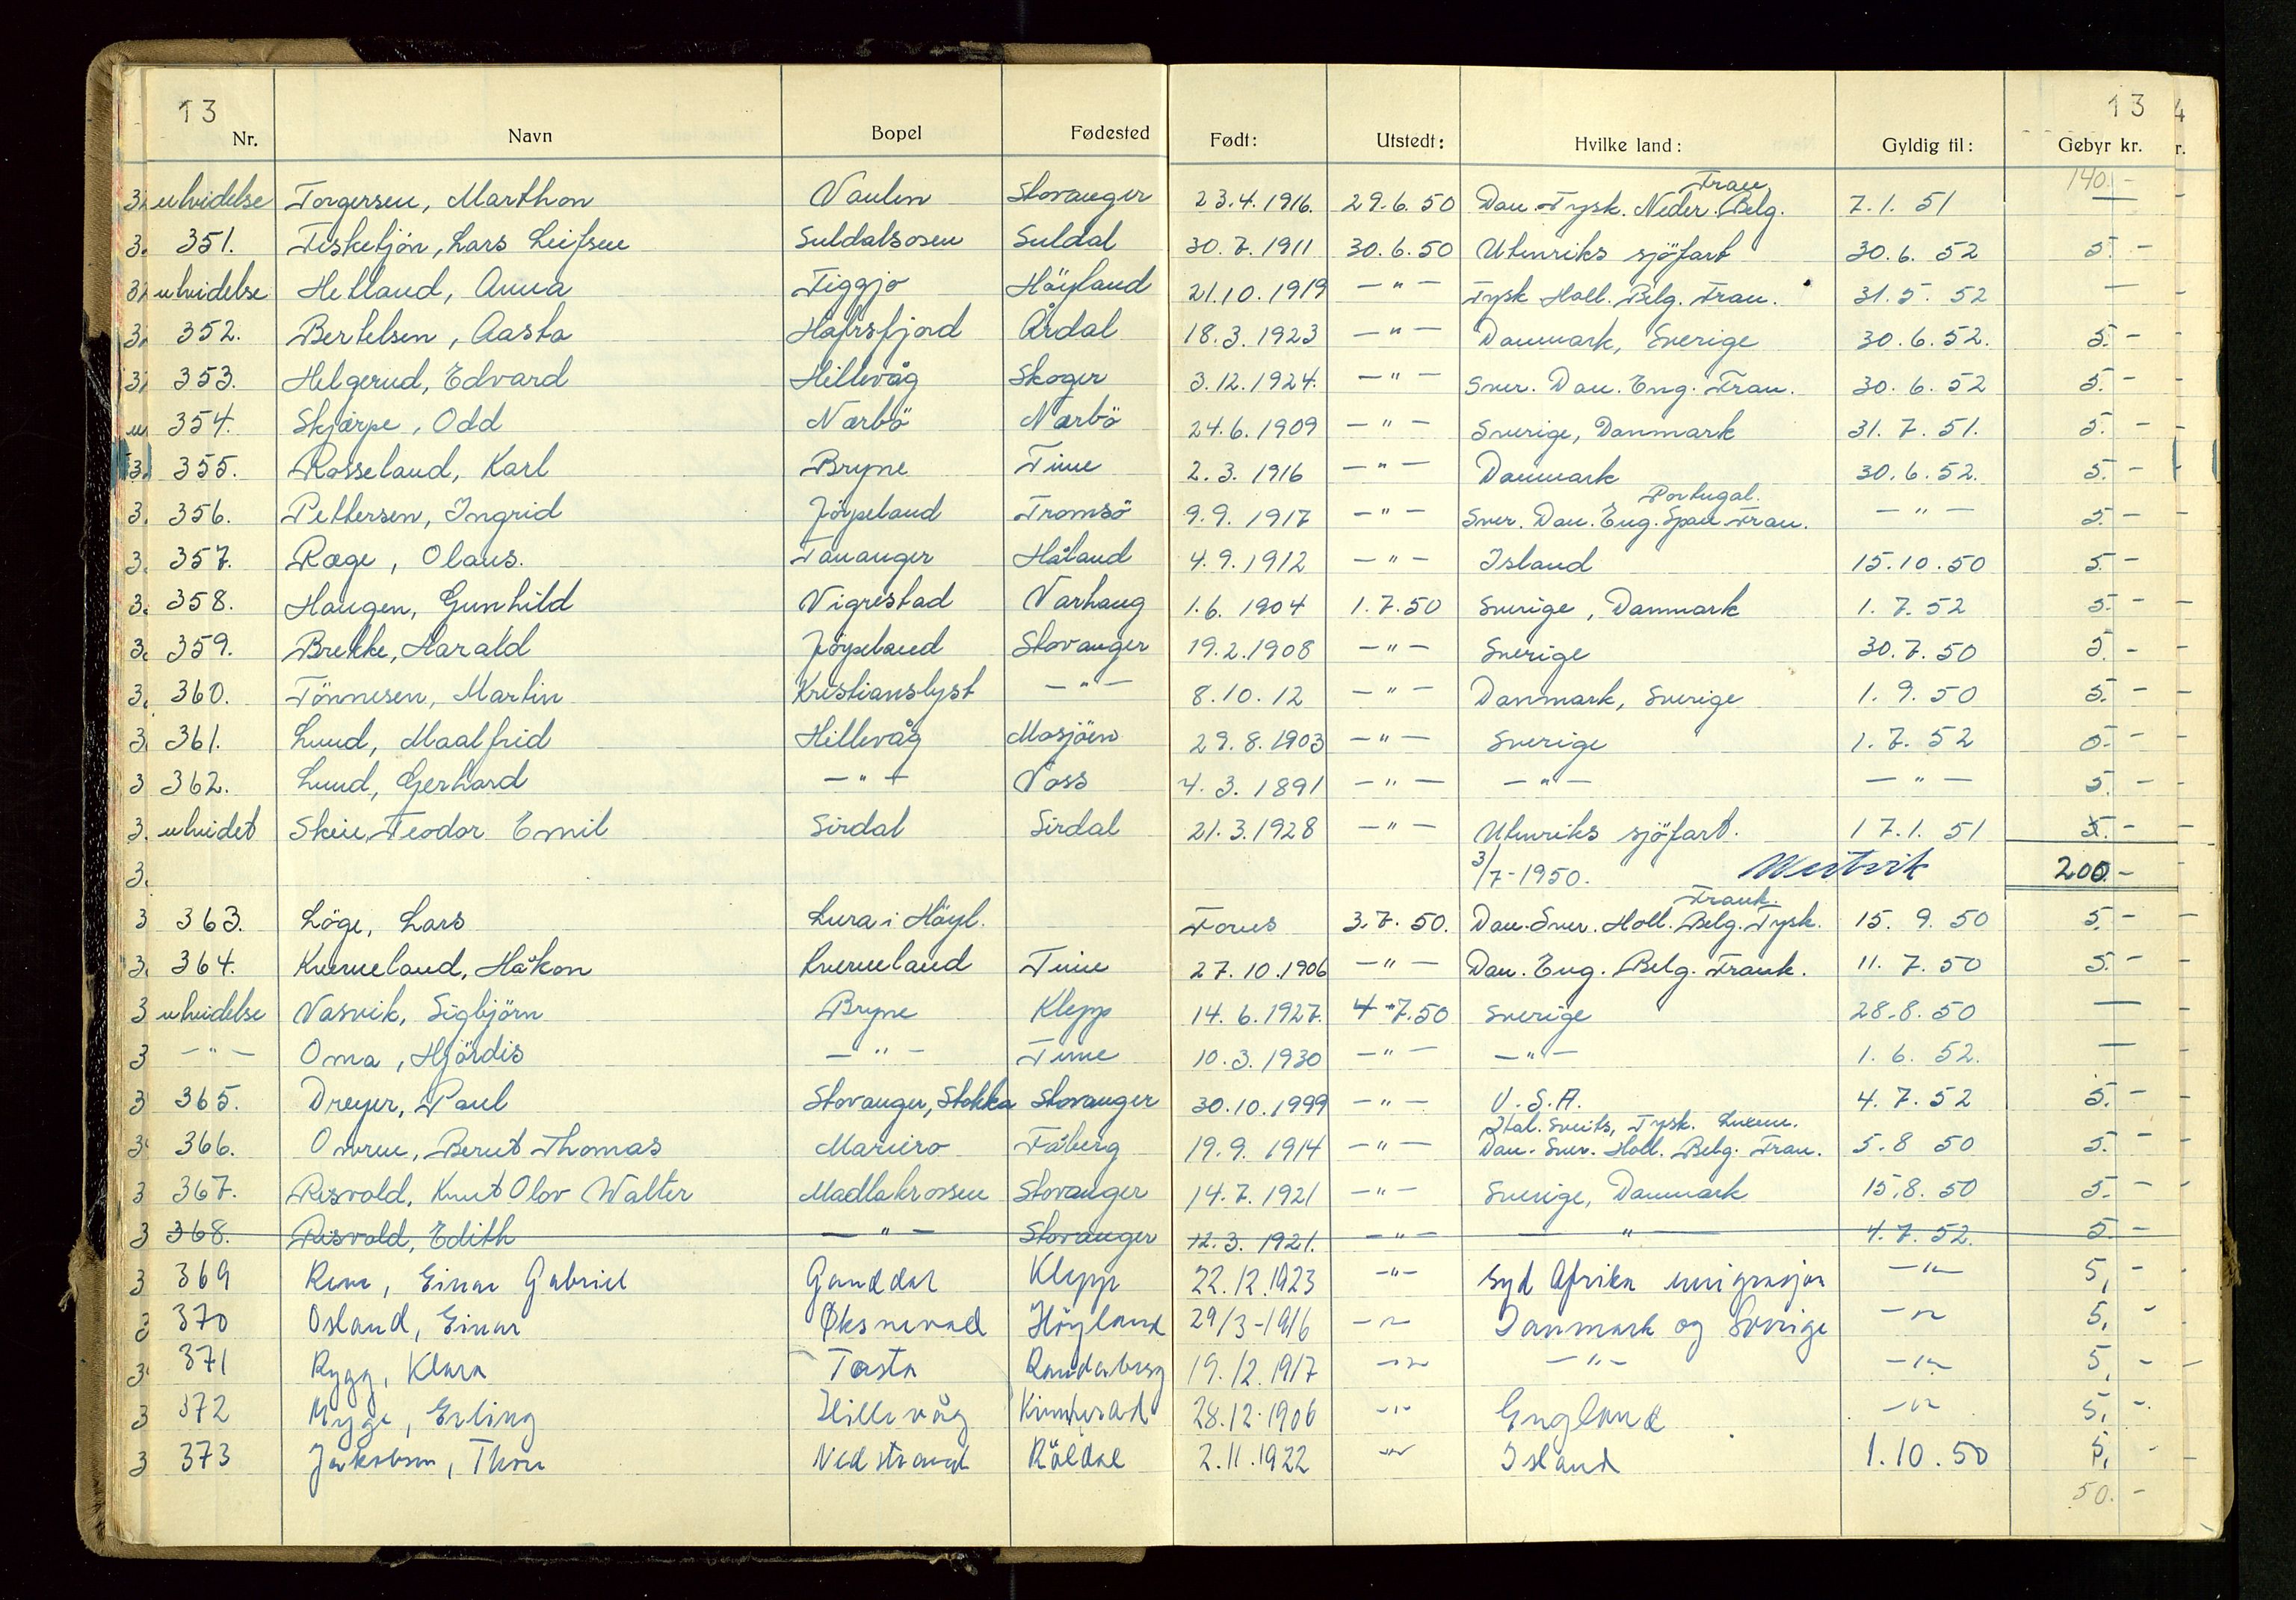 13 13
Nr. Navn Bopel Fødested Født: Utstedt: Hvilke land: Gyldig til: Gebyr kr.
140.-
Fran
utvidelse Torgersen, Marthon Vaulen Stavanger 23.4.1916. 29.6.50 Dan. Tysk. Neder. Belg. 7.1.51 —
351. Fisketjön, Lars Leifsen Suldalsosen Suldal 30.7.1911 30.6.50 Utenriks sjöfart 30.6.52 5.-
utvidelse Helland, Anna Figgjo Höyland 21.10.1919 — " — Tysk Holl. Belg. Fran. 31.5.52 —
352. Bertelsen, Aasta Hafrsfjord Årdal 18.3.1923 — " — Danmark, Sverige 30.6.52. 5.-
353. Helgerud, Edvard Hillevåg Skoger 3.12.1924. — " — Sver. Dan. Eng. Fran. 30.6.52 5.-
354. Skjærpe, Odd Nærbö Nærbö 24.6.1909 — " — Sverige, Danmark 31.7.51. 5.-
355. Rosseland, Karl Bryne Time 2.3.1916 — " — Danmark 30.6.52. 5.-
Portugal.
356. Pettersen, Ingrid Jörpeland Tromsö 9.9.1917 — " — Sver. Dan. Eng. Span Fran. — " — 5.-
357. Ræge, Olaus. Tananger Håland 4.9.1912 — " — Island 15.10.50 5.-
358. Haugen, Gunhild Vigrestad Varhaug 1.6.1904 1.7.50 Sverige, Danmark 1.7.52 5.-
359. Brekke, Harald Jörpeland Stavanger 19.2.1908 — " — Sverige 30.7.50 5.-
360. Tönnesen, Martin Kristianslyst — " — 8.10.12 — " — Danmark, Sverige 1.9.50 5.-
361. Lund, Maalfrid Hillevåg Mosjöen 29.8.1903 — " — Sverige 1.7.52 5.-
362. Lund, Gerhard — " — Voss 4.3.1891 — " — — " — — " — 5.-
utvidet Skeie, Teodor Emil Sirdal Sirdal 21.3.1928 — " — Utenriks sjöfart. 17.1.51 5.-
3/7-1950. 200.-
Frank.
363. Löge, Lars Lura i Höyl. Forus 3.7.50. Dan. Sver. Holl. Belg. Tysk. 15.9.50 5.-
364. Kverneland, Håkon Kverneland Time 27.10.1906 — " — Dan. Eng. Belg. Frank. 11.7.50 5.-
utvidelse Vasvik, Sigbjörn Bryne Klepp 14.6.1927. 4.7.50 Sverige 28.8.50 —
— " — Oma, Hjördis — " — Time 10.3.1930 — " — — " — 1.6.52. —
365. Dreyer, Paul Stavanger, Stokka Stavanger 30.10.1999 — " — U.S.A. 4.7.52 5.-
Ital. Sveits, Tysk. Luxem.
366. Omren, Bernt Thomas Mariero Fåberg 19.9.1914 — " — Dan. Sver. Holl. Belg. Fran. 5.8 50 5.-
367. Risvold, Knut Olov Walter Madlakrossen Stavanger 14.7.1921 — " — Sverige, Danmark 15.8.50 5.-
368. Risvold, Edith — " — Stavanger 12.3.1921. — " — — " — 4.7.52. 5.-
369 Reve, Einar Gabriel Ganddal Klepp 22.12.1923 — " — Syd Afrika emigrasjon — " — 5,-
370 Osland, Einar Øksnevad Höyland 29/3-1916 — " — Danmark og Sverige — " — 5,-
371 Rygg, Klara Tasta Randaberg 19.12.1917 — " — — " — — " — 5,-
372 Myge, Erling Hillevåg Kvinherad 28.12.1906 — " — England — " — 5,-
373 Jakobsen, Thor Nedstrand Röldal 2.11.1922 — " — Island 1.10.50 5,-
50.-